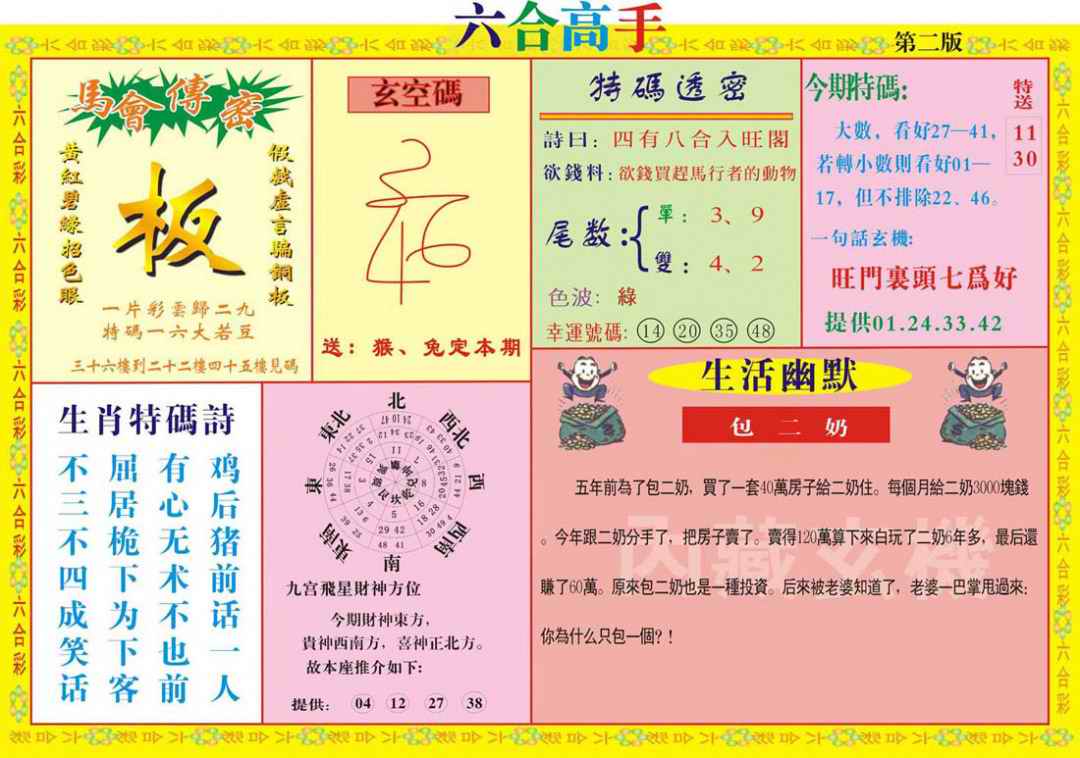 六合高手
第二版
馬會傳密
黃紅碧綠招色眼
板
假戲虛言騙銅板
一片彩雲歸二九
特碼一六大若豆
三十六樓到二十二樓四十五樓見碼
玄空碼
送：猴、兔定本期
特碼透密
詩曰：四有八合入旺閣
欲錢料：欲錢買趕馬行者的動物
尾数：
單：3、9
雙：4、2
色波：綠
幸運號碼：14 20 35 48
今期特碼:
特送
11
30
大數，看好27—41，
若轉小數則看好01—
17，但不排除22、46。
一句話玄機:
旺門裏頭七爲好
提供01.24.33.42
生肖特碼詩
不屈有鸡
三居心后
不桅无猪
四下术前
成为不话
笑下也一
话客前人
北
東北
西北
東
西
東南
西南
南
九宫飛星財神方位
今期財神東方，
貴神西南方，喜神正北方。
故本座推介如下:
提供: 04 12 27 38
生活幽默
包二奶
五年前為了包二奶，買了一套40萬房子給二奶住。每個月給二奶3000塊錢
。今年跟二奶分手了，把房子賣了。賣得120萬算下來白玩了二奶6年多，最后還
賺了60萬。原來包二奶也是一種投資。后來被老婆知道了，老婆一巴掌甩過來:
你為什么只包一個?！
内藏玄機
六合彩